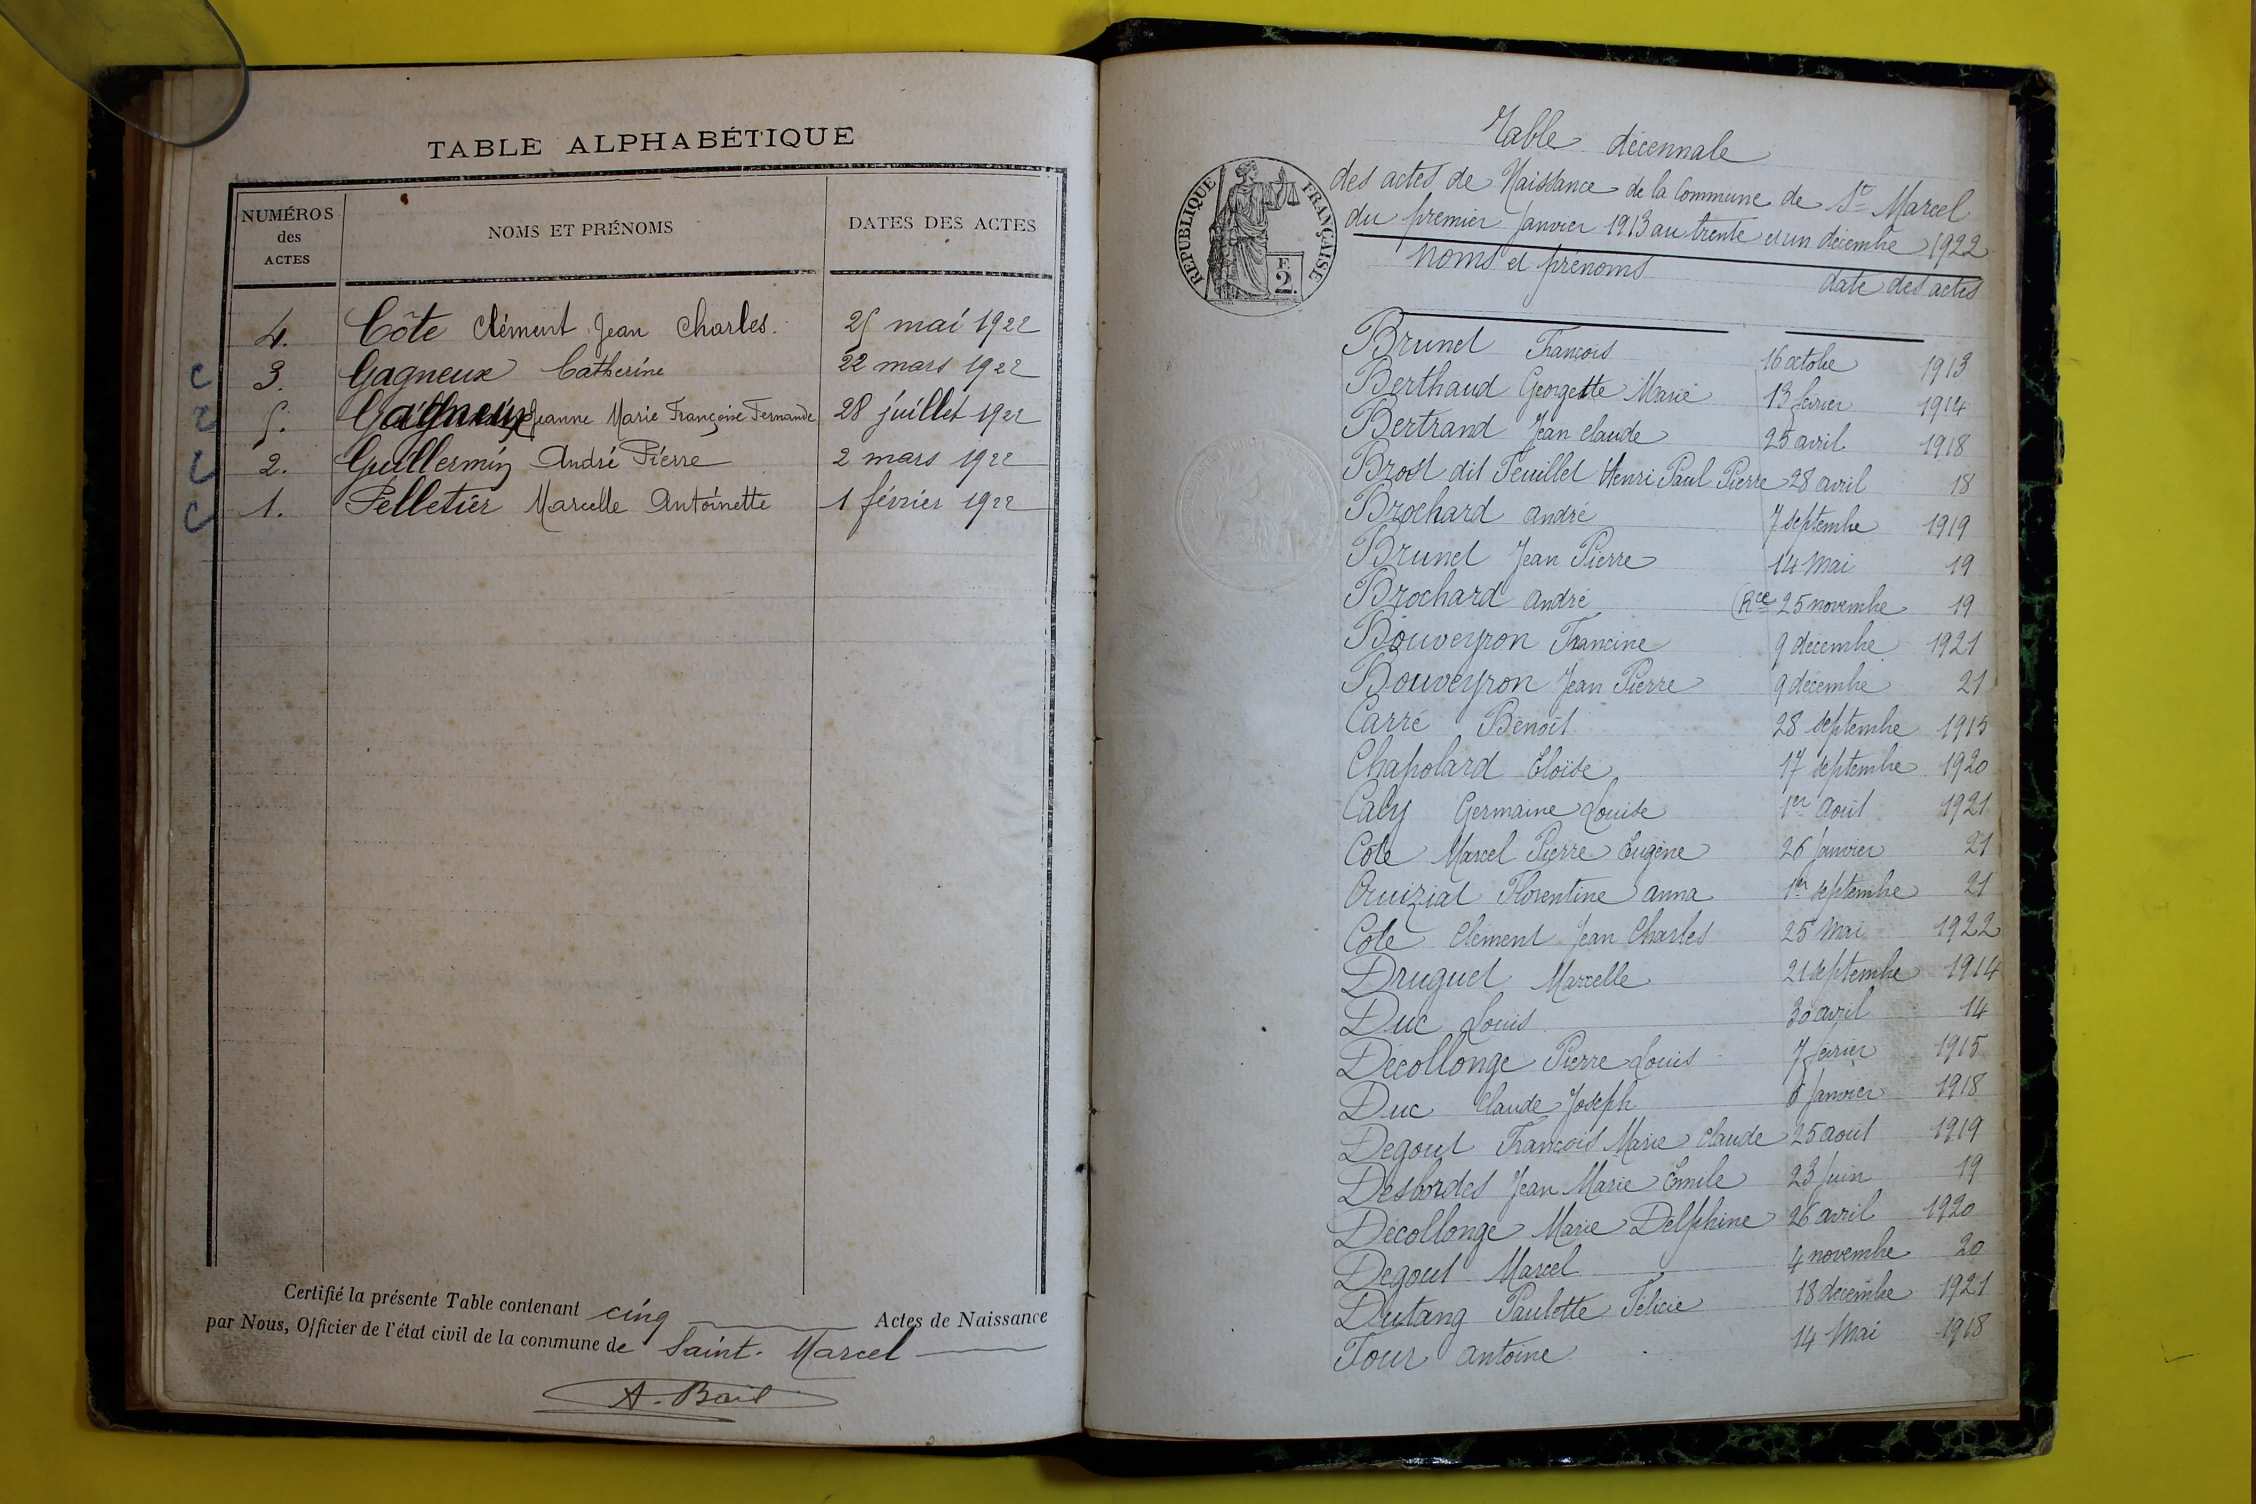 TABLE ALPHABÉTIQUE
NUMÉROS
des
ACTES
NOMS ET PRÉNOMS
DATES DES ACTES
4. Côte Clément Jean Charles. 25 mai 1922
3. Gagneux Catherine 22 mars 1922
5. Gagneux Jeanne Marie Françoise Fernande 28 juillet 1922
2. Guillermin André Pierre 2 mars 1922
1. Pelletier Marcelle Antoinette 1 février 1922
Certifié la présente Table contenant cinq Actes de Naissance
par Nous, Officier de l'état civil de la commune de Saint-Marcel
A. Bail
Table décennale
des actes de Naissance de la Commune de St Marcel
du premier Janvier 1913 au trente et un décembre 1922
RÉPUBLIQUE FRANÇAISE
F.
2.
Noms et prénoms date des actes
Brunet François 16 octobre 1913
Berthaud Georgette Marie 13 février 1914
Bertrand Jean Claude 25 avril 1918
Brost dit Feuillet Henri Paul Pierre 28 avril 18
Brochard André 7 septembre 1919
Brunet Jean Pierre 14 Mai 19
Brochard André (Rce 25 novembre 19
Bouveyron Francine 9 décembre 1921
Bouveyron Jean Pierre 9 décembre 21
Carré Benoît 28 septembre 1915
Chapolard Eloïse 17 septembre 1920
Caly Germaine Louise 1er Août 1921
Cote Marcel Pierre Eugène 26 Janvier 21
Cruiziat Florentine Anna 1er septembre 21
Cote Clément Jean Charles 25 Mai 1922
Druguet Marcelle 21 septembre 1914
Duc Louis 30 avril 14
Décollonge Pierre Louis 7 février 1915
Duc Claude Joseph 6 Janvier 1918
Degout François Marie Claude 25 août 1919
Desbordes Jean Marie Emile 23 Juin 19
Décollonge Marie Delphine 26 avril 1920
Degout Marcel 4 novembre 20
Dutang Paulette Félicie 18 décembre 1921
Four Antoine 14 Mai 1918